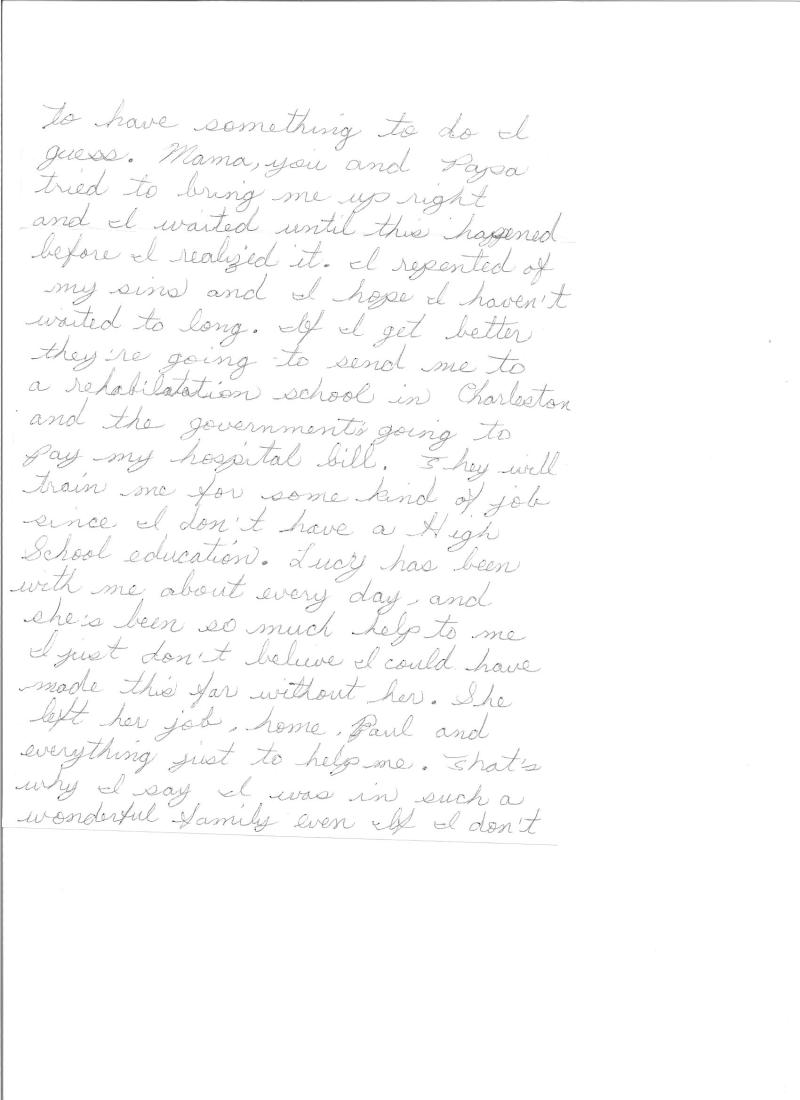 to have something to do I
guess. Mama, you and Papa
tried to bring me up right
and I waited until this happened
before I realized it. I repented of
my sins and I hope I haven't
waited to long. If I get better
they're going to send me to
a rehabilatation school in Charleston
and the government's going to
pay my hospital bill. They will
train me for some kind of job
since I don't have a High
School education. Lucy has been
with me about every day, and
she's been so much help to me
I just don't believe I could have
made this far without her. She
left her job, home, Paul and
everything just to help me. That's
why I say I was in such a
wonderful family even If I don't